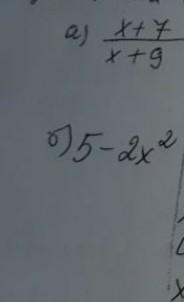 а) x+7
x+9
б) 5-2x²